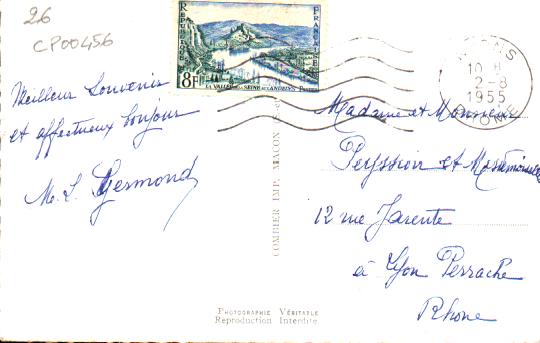 26
CP00456
REPUBLIQUE FRANÇAISE
8F
LA VALLEE DE LA SEINE AUX ANDELYS POSTES
10 H
2-8
1955
Meilleur Souvenir
et affectueux bonjour
M. L. Germond
COMBIER IMP. MACON
Madame et Monsieur
Peyssion et Mademoiselle
12 rue Jarente
à Lyon Perrache
Rhone
PHOTOGRAPHIE VÉRITABLE
Reproduction Interdite